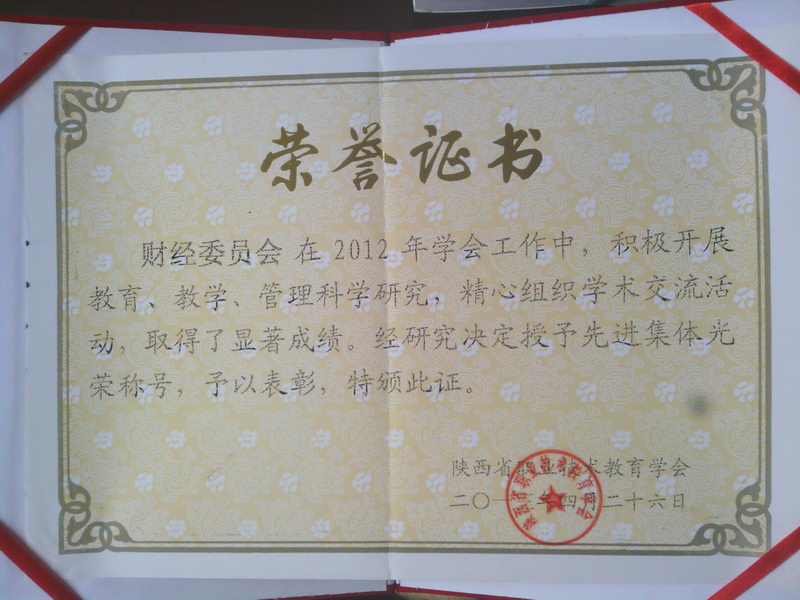 荣誉证书
财经委员会 在 2012 年学会工作中，积极开展
教育、教学、管理科学研究，精心组织学术交流活
动，取得了显著成绩。经研究决定授予先进集体光
荣称号，予以表彰，特颁此证。
陕西省职业技术教育学会
二〇一三年四月二十六日
陕西省职业技术教育学会